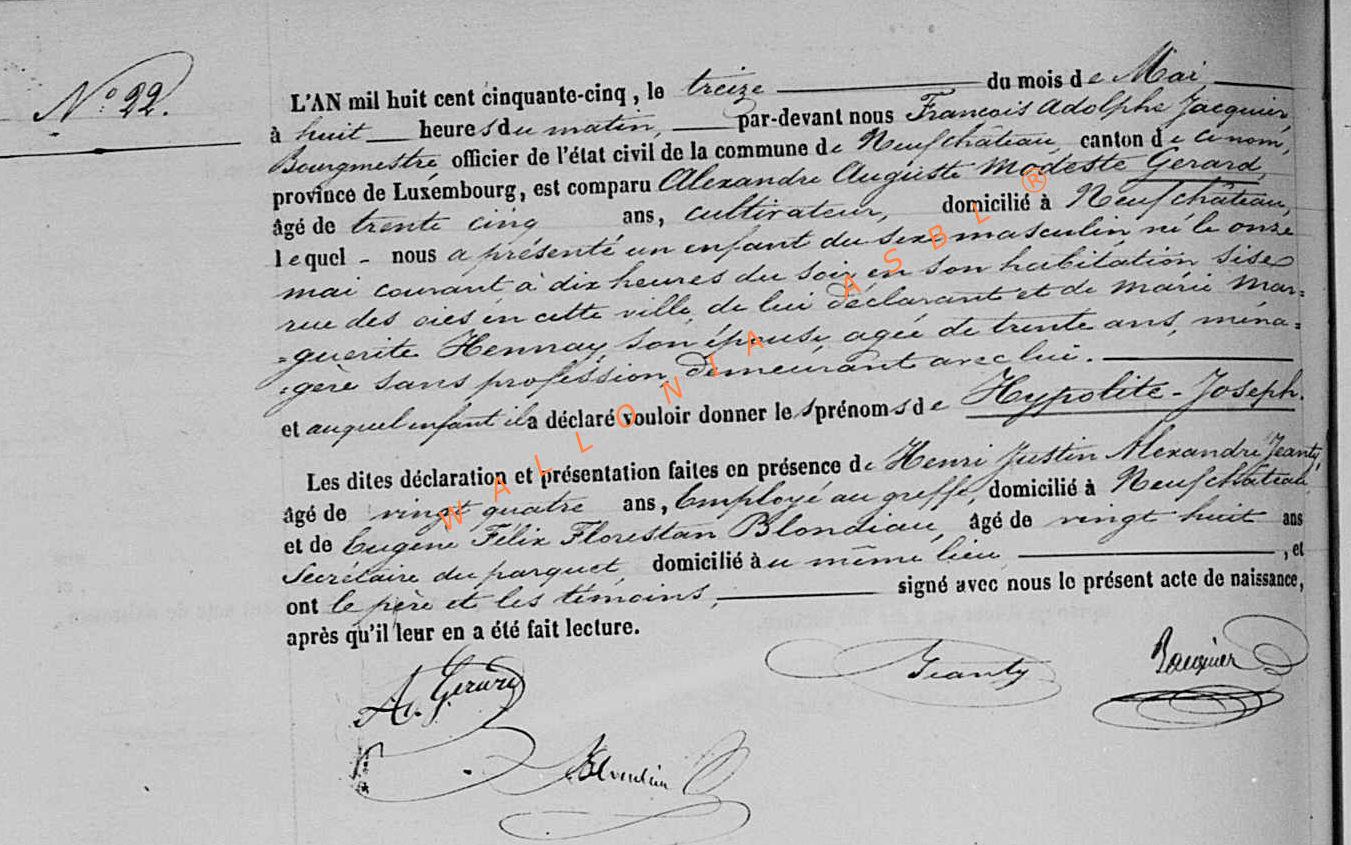 N° 22.
L'AN mil huit cent cinquante-cinq, le treize du mois de Mai
à huit heures du matin, par-devant nous François Adolphe Jacquier,
Bourgmestre, officier de l'état civil de la commune de Neufchâteau, canton de ce nom,
province de Luxembourg, est comparu Alexandre Auguste Modeste Gerard,
âgé de trente cinq ans, cultivateur, domicilié à Neufchâteau,
lequel - nous a présenté un enfant du sexe masculin né le onze
mai courant à dix heures du soir, en son habitation sise
rue des oies en cette ville, de lui déclarant et de Marie Mar=
=guerite Hennay, son épouse, agée de trente ans, ména=
=gère sans profession, demeurant avec lui.
et auquel enfant il a déclaré vouloir donner les prénoms de Hypolite-Joseph.
Les dites déclaration et présentation faites en présence de Henri Justin Alexandre Jeanty,
âgé de vingt quatre ans, Employé au greffe, domicilié à Neufchâteau
et de Eugène Félix Florestan Blondiau, âgé de vingt huit ans
Secrétaire du parquet, domicilié à u même lieu, et
ont le père et les témoins, signé avec nous le présent acte de naissance,
après qu'il leur en a été fait lecture.
A. Gerard
Jeanty
Jacquier
WALLONIA ASBL ®